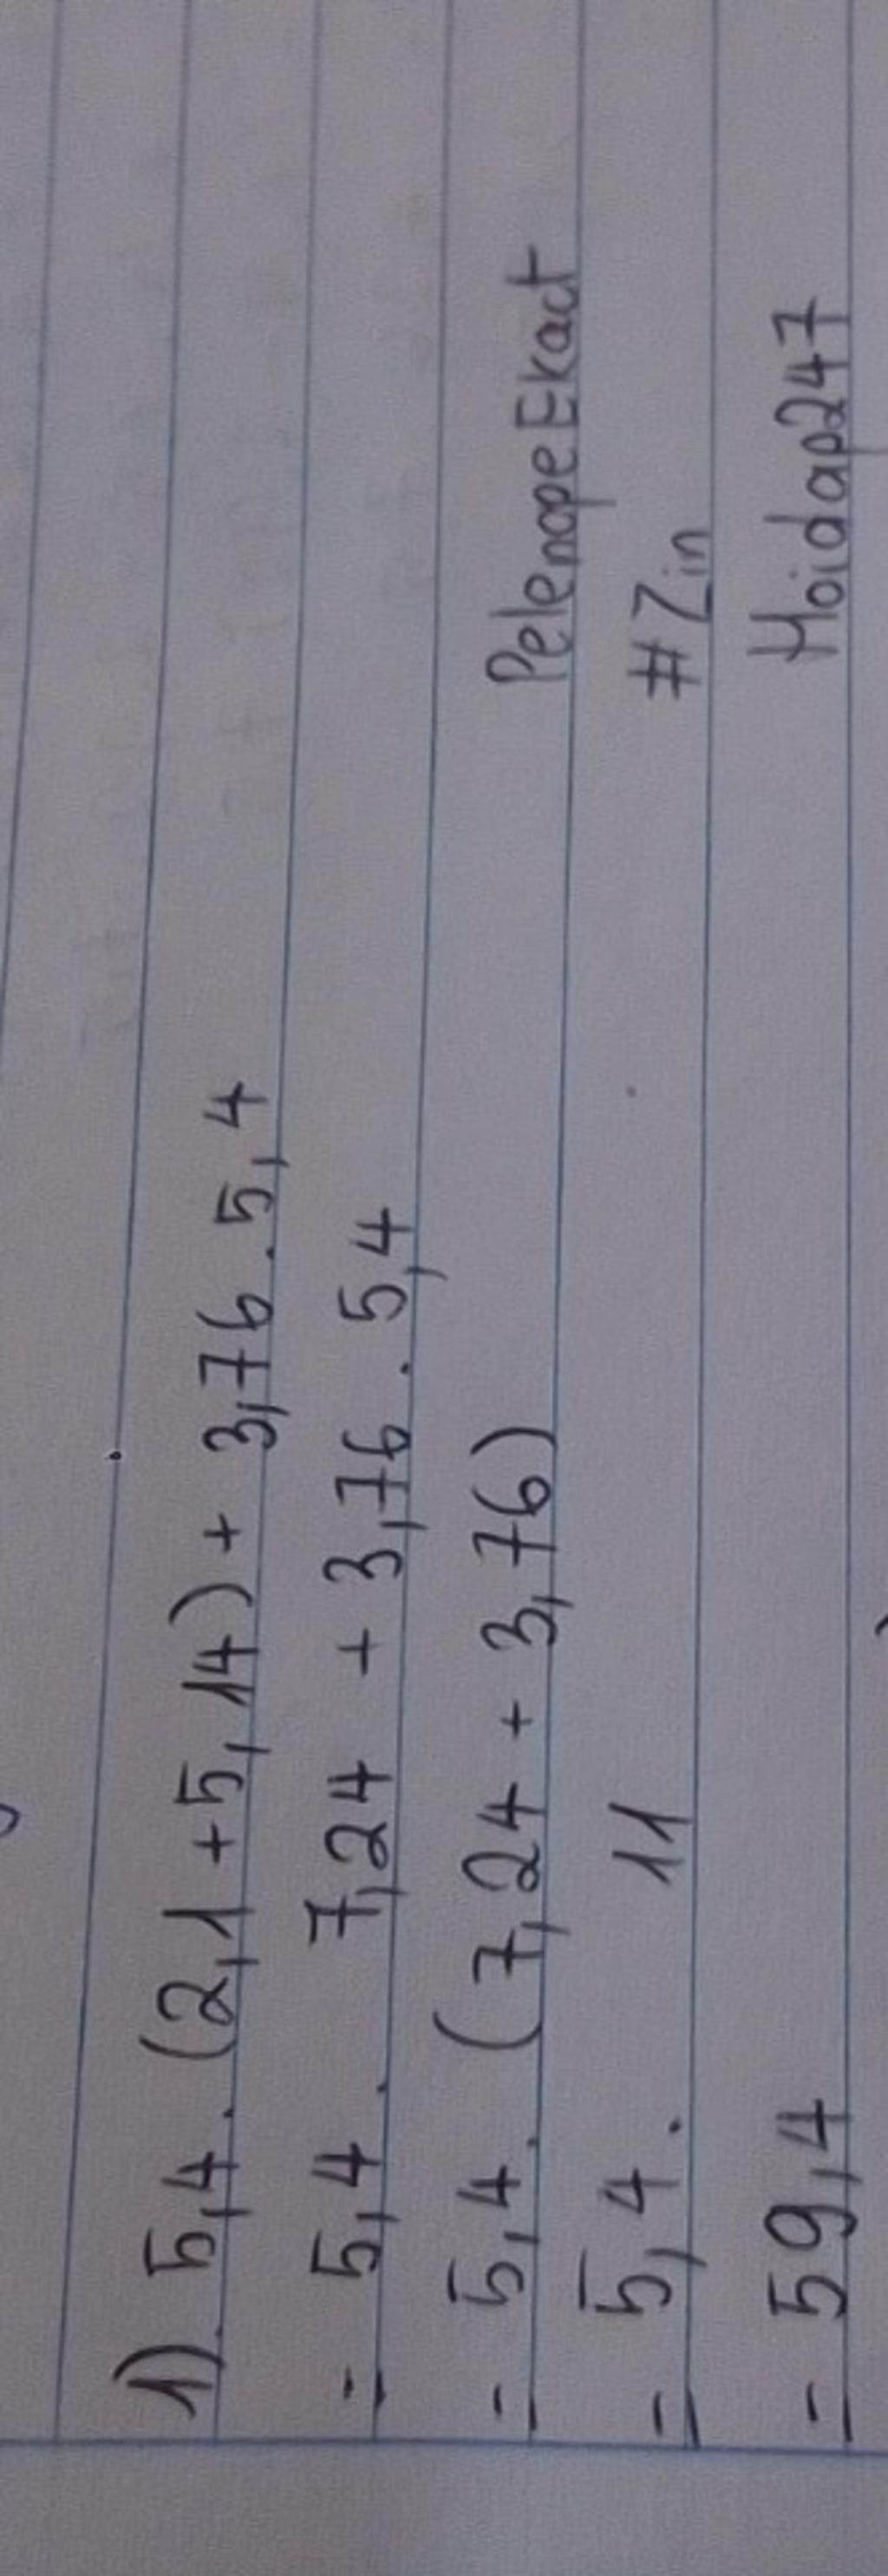 1) 5,4 . (2,1 + 5,14) + 3,76 . 5,4
= 5,4 . 7,24 + 3,76 . 5,4
= 5,4 . (7,24 + 3,76)
= 5,4 . 11
= 59,4
PelenopeEkact
#Zin
Hoidap247